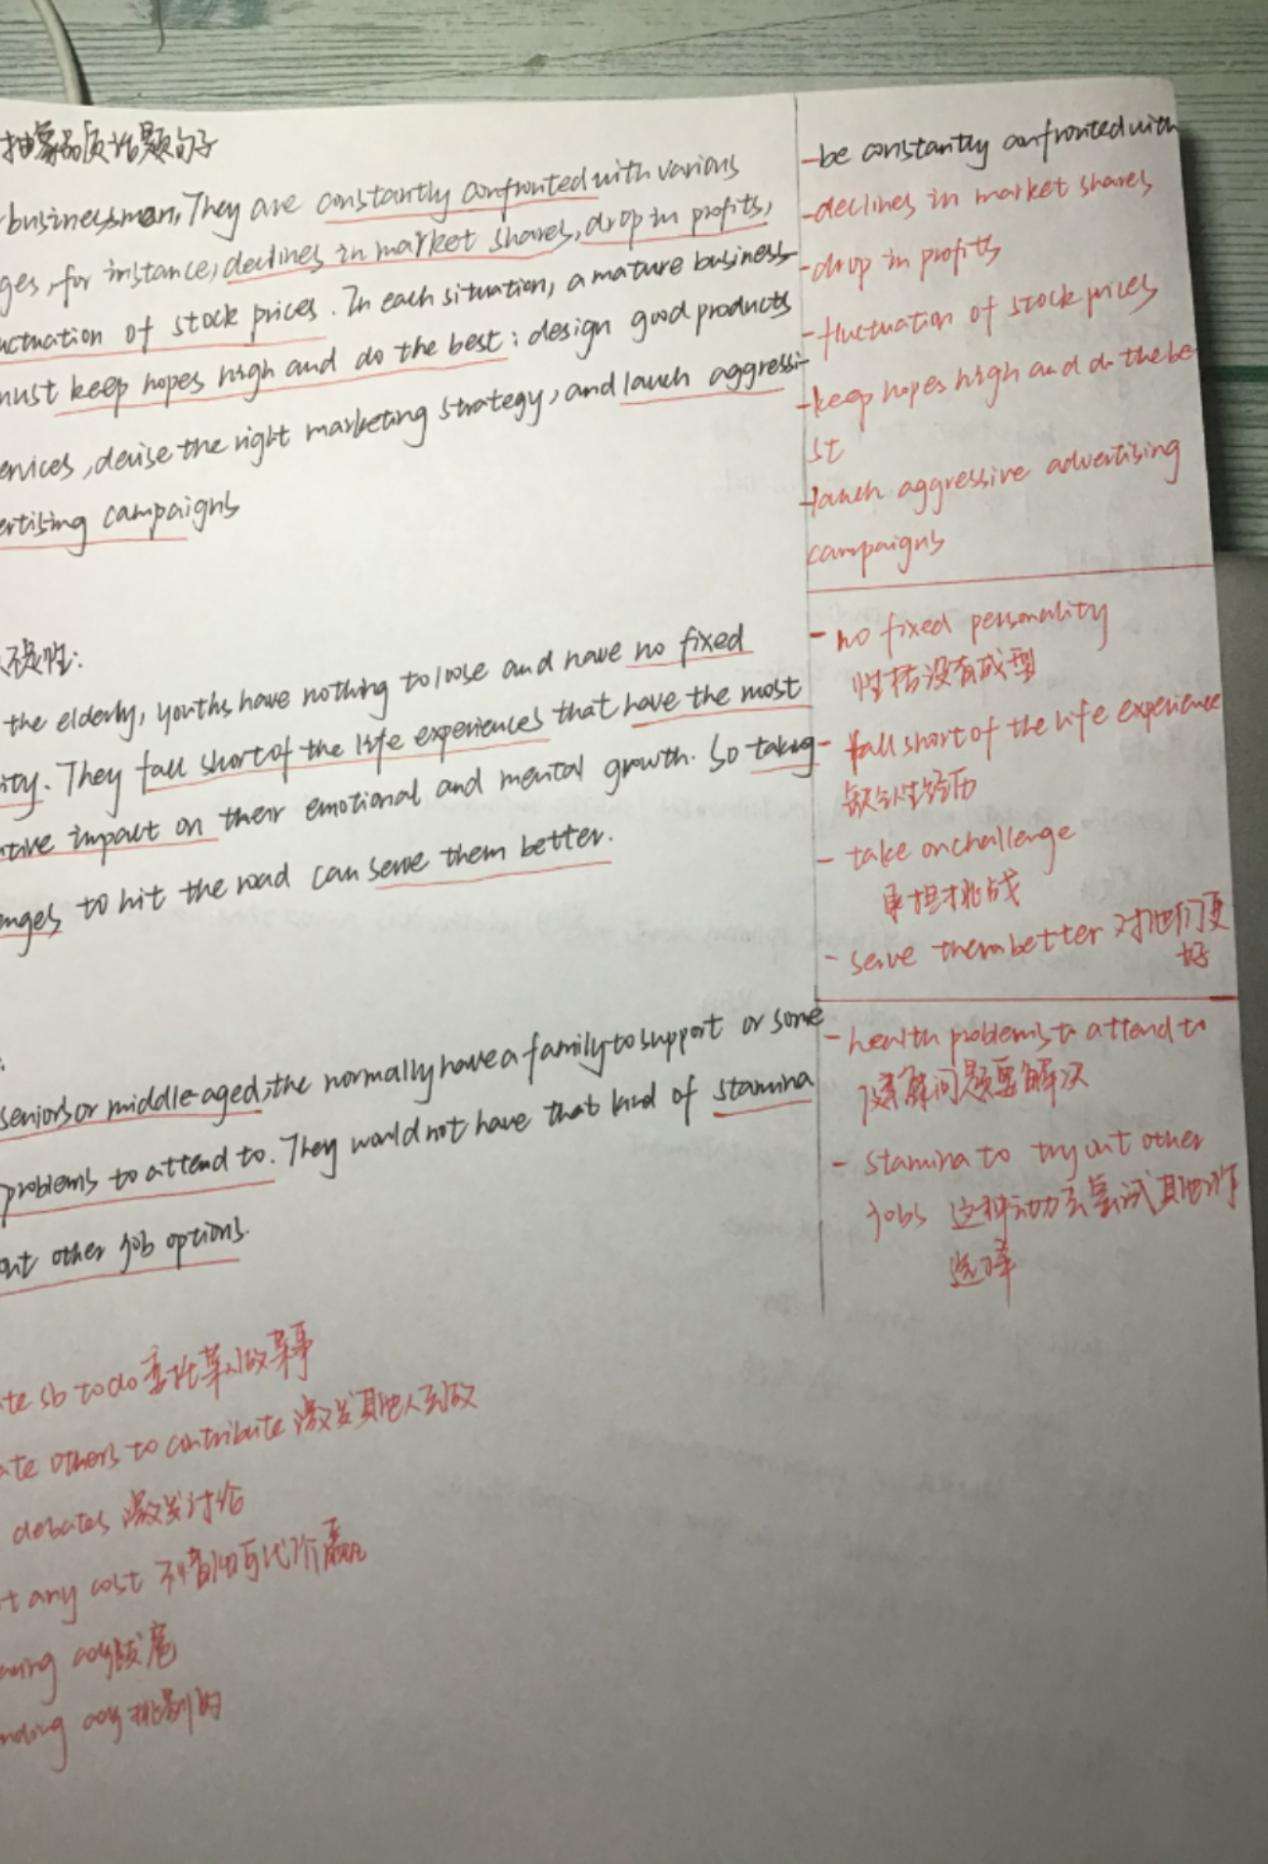 抽象品质话题句子
businessman, They are constantly confronted with various
ges, for instance, declines in market shares, drop in profits,
uctuation of stock prices. In each situation, a mature business-
must keep hopes high and do the best: design good products
ervices, devise the right marketing strategy, and lauch aggressi-
ertising campaigns
the elderly, youths have nothing to loose and have no fixed
ity. They fall short of the life experiences that have the most
ative impact on their emotional and mental growth. So taking
enges to hit the road can serve them better.
seniors or middle-aged, the normally have a family to support or some
problems to attend to. They would not have that kind of stamina
out other job options.
te sb to do 委托某人做某事
ate others to contribute 激发其他人
debates 激发讨论
t any cost 不惜任何代价赢
aring adj
anding adj 挑剔的
-be constantly confronted with
-declines in market shares
-drop in profits
-fluctuation of stock prices
-keep hopes high and do the be
st
-lauch aggressive advertising
campaigns
- no fixed personality
性格没有成型
- fall short of the life experience
缺少人生经历
- take on challenge
承担挑战
- serve them better 对他们更
好
- health problems to attend to
健康问题要解决
- stamina to try out other
jobs 这种动力去尝试其他
选择